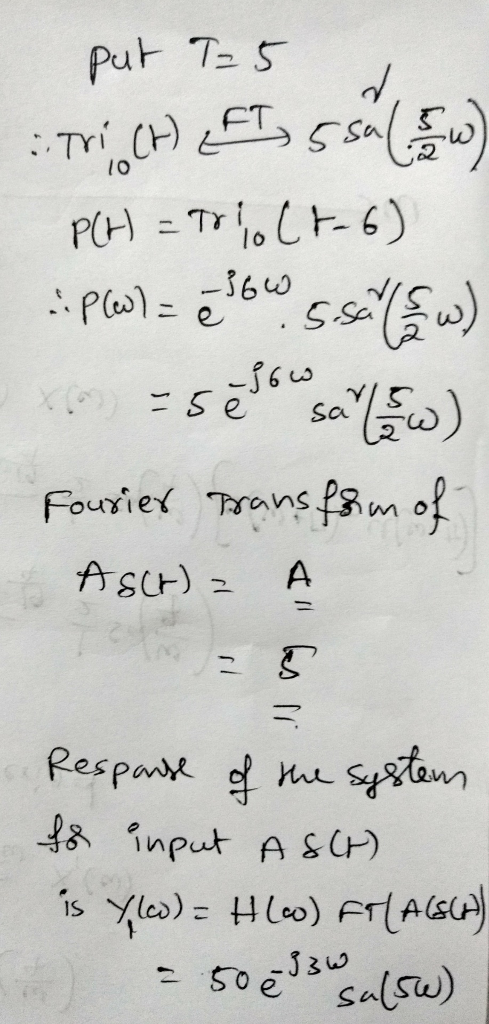 put T=5
∴ Tri₁₀(t) ⟷FT 5 Sa²(5/2 ω)
P(t) = Tri₁₀(t-6)
∴ P(ω) = e^-j6ω . 5.Sa²(5/2 ω)
= 5 e^-j6ω Sa²(5/2 ω)
Fourier Transform of
A δ(t) = A
= 5
Response of the system
for input A δ(t)
is Y₁(ω) = H(ω) FT(A(δ(t)
= 50 e^-j3ω Sa(5ω)